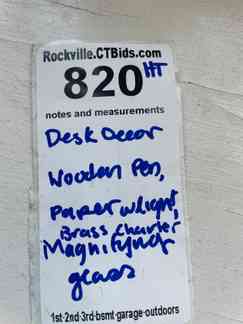 Rockville.CTBids.com
820 HT
notes and measurements
Desk Decor
Wooden Pen,
Paperweight,
Brass Charter
Magnifying
glass
1st-2nd-3rd-bsmt-garage-outdoors